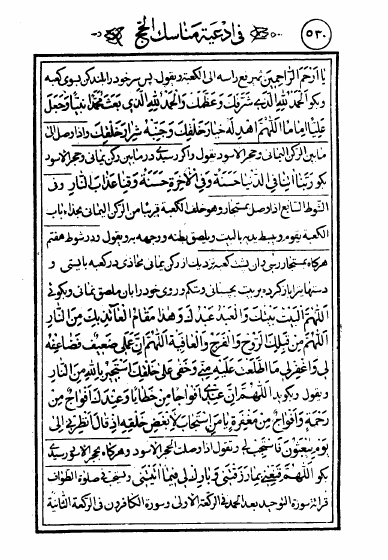 ۵۳۰ في ادعية مناسك الحج
يا ارحم الراحمين ثم يرفع راسه الى الكعبة ويقول پس سر خود را بلند كن بسوى كعبه
وبكو الحمد لله الذى شرفك وعظمك والحمد لله الذى بعث محمدا نبيا وجعل
عليا اماما اللهم اهد له خيار خلقك وجنبه شرار خلقك واذا وصل الى
ما بين الركن اليمانى وحجر الاسود يقول واكر رسيدى در ما بين ركن يمانى وحجر الاسود
بكو ربنا اتنا فى الدنيا حسنة وفى الاخرة حسنة وقنا عذاب النار وفى
الشوط السابع اذا وصل بمستجار وهو خلف الكعبة قريبا من الركن اليمانى بحذاء باب
الكعبة يقوم ويبسط يديه بالبيت ويلصق بطنه ووجهه به ويقول ودر شوط هفتم
هركاه بمستجار رسى وان پشت كعبه نزديك ركن يمانى محاذى در كعبه بايستى و
دستها را باز كرده بر بيت بچسبانى وشكم و روى خود را بان ملصق نمائى وبكوئى
اللهم البيت بيتك والعبد عبدك وهذا مقام العائذ بك من النار
اللهم من قبلك الروح والفرج والعافية اللهم ان عملى ضعيف فضاعفه
لى واغفر لى ما اطلعت عليه منى وخفى على خلقك استجير بالله من النار
ويقول وبكويد اللهم ان عندى افواجا من خطايا وعندك افواج من
رحمة وافواج من مغفرة يا من استجاب لابغض خلقه اذ قال انظرنى الى
يوم يبعثون فاستجب لى ويقول اذا وصلت الحجر الاسود وهركاه بحجر الاسود رسيدى
بكو اللهم قنعنى بما رزقتنى وبارك لى فيما اتيتنى ويستحب فى صلوة الطواف
قرائة سورة التوحيد بعد الحمد فى الركعة الاولى وسورة الكافرون فى الركعة الثانية